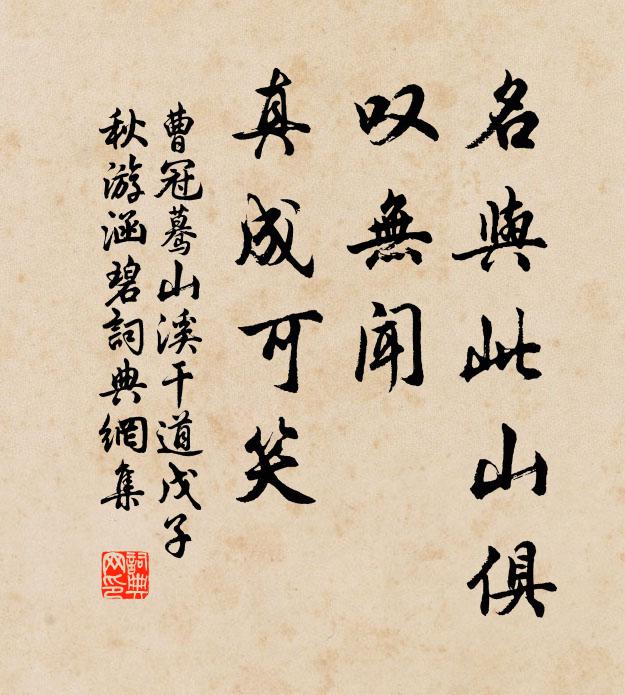 名與此山俱
叹無闻
真成可笑
曹冠驀山溪干道戊子
秋游涵碧詞典網集
詞典
网印